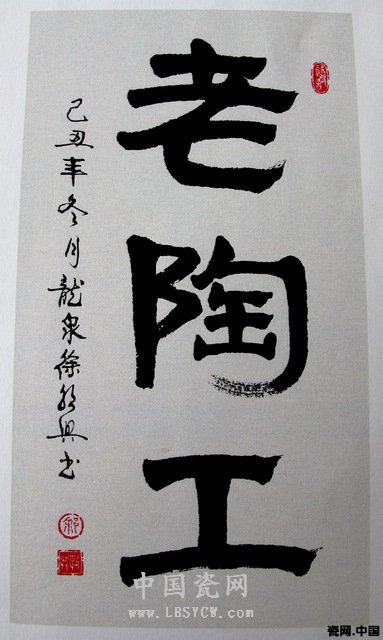 老陶工
己丑年冬月龍泉徐朝興书
中国瓷网
www.LBSYCW.com
瓷网.中国